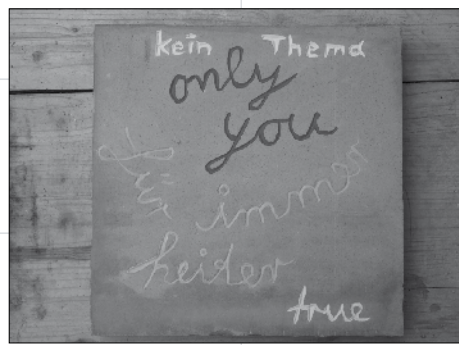 kein Thema
only
you
Für immer
heiter
true